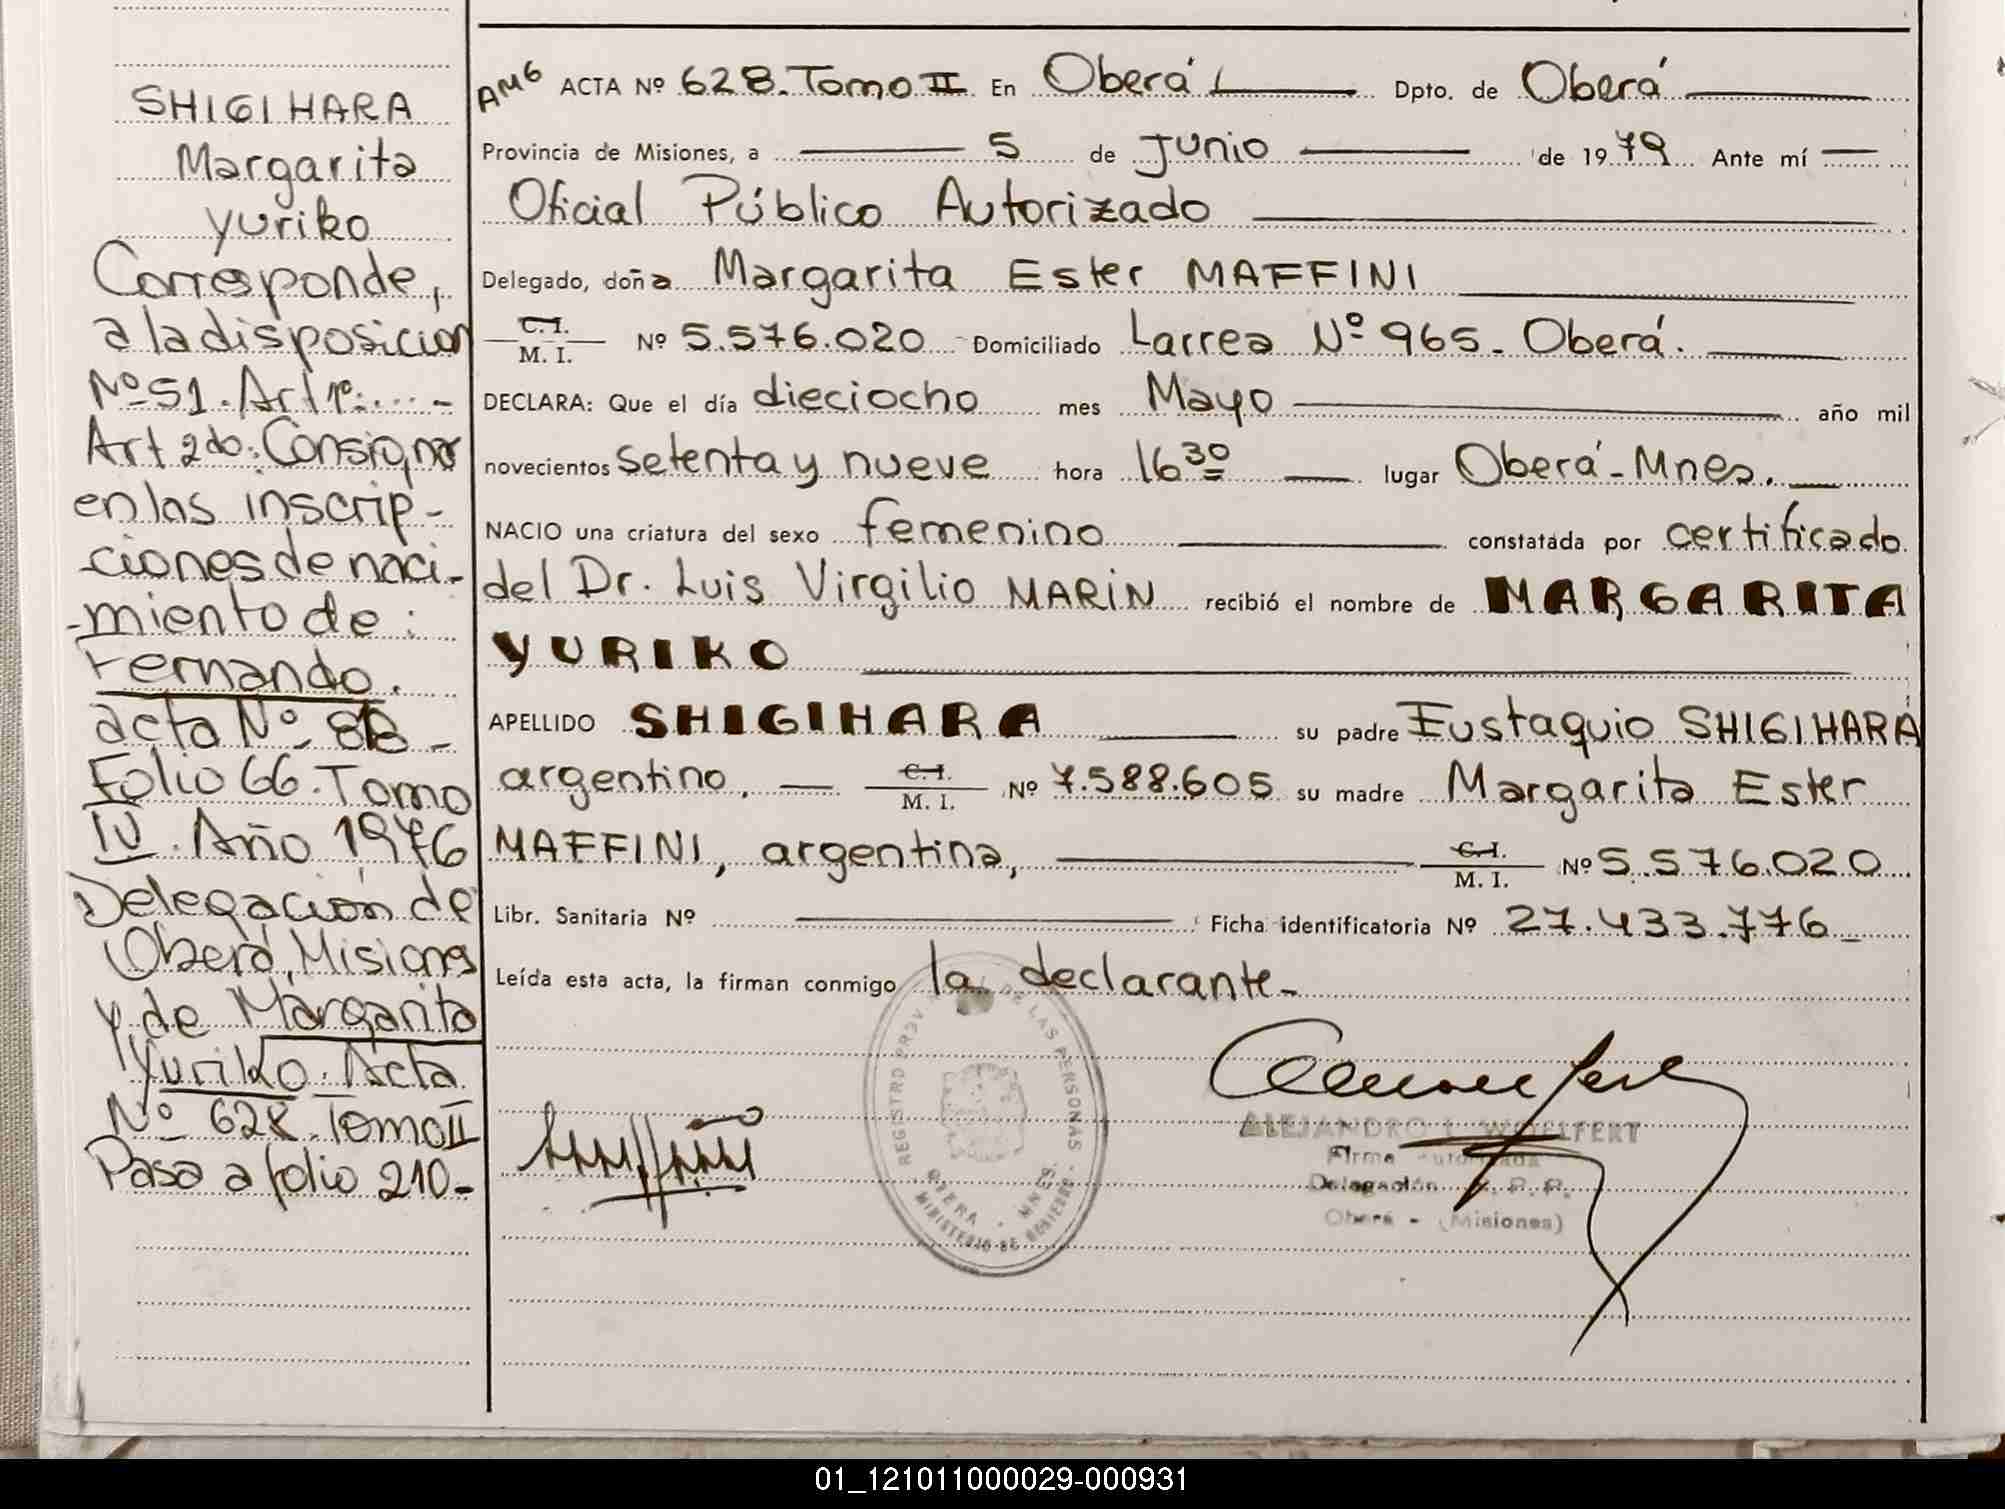 SHIGIHARA
Margarita
Yuriko
Corresponde,
a la disposicion
Nº 51. Art 1º: . . . -
Art 2do: Consignar
en las inscrip-
ciones de naci-
-miento de :
Fernando.
acta Nº 818 -
Folio 66. Tomo
IV. Año 1976
Delegación de
Oberá, Misiones
y de Margarita
Yuriko. Acta
Nº 628. Tomo II
Pasa a folio 210-
AMG ACTA Nº 628. Tomo II En Oberá Dpto. de Oberá
Provincia de Misiones, a 5 de Junio de 1979 Ante mí
Oficial Público Autorizado
Delegado, doña Margarita Ester MAFFINI
C.I. M. I. Nº 5.576.020 Domiciliado Larrea Nº 965. Oberá.
DECLARA: Que el día dieciocho mes Mayo año mil
novecientos setenta y nueve hora 16 30 lugar Oberá - Mnes.
NACIO una criatura del sexo femenino constatada por certificado
del Dr. Luis Virgilio MARIN recibió el nombre de MARGARITA
YURIKO
APELLIDO SHIGIHARA su padre Eustaquio SHIGIHARA
argentino, C.I. M. I. Nº 7.588.605 su madre Margarita Ester
MAFFINI, argentina, C.I. M. I. Nº 5.576.020
Libr. Sanitaria Nº Ficha identificatoria Nº 27.433.776
Leída esta acta, la firman conmigo la declarante-
REGISTRO PROV. DE LAS PERSONAS
OBERA - MNES.
MINISTERIO DE GOBIERNO
ALEJANDRO L. WOELFERT
Firma Autorizada
Delegación R. P. P.
Oberá - (Misiones)
01_121011000029-000931